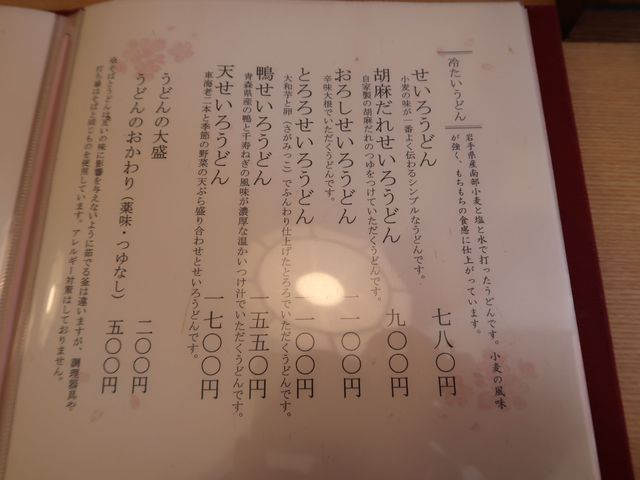 冷たいうどん
岩手県産南部小麦と塩と水で打ったうどんです。小麦の風味
が強く、もちもちの食感に仕上がっています。
せいろうどん 七八〇円
小麦の味が一番よく伝わるシンプルなうどんです。
胡麻だれせいろうどん 九〇〇円
自家製の胡麻だれのつゆをつけていただくうどんです。
おろしせいろうどん 一一〇〇円
辛味大根でいただくうどんです。
とろろせいろうどん 一一〇〇円
大和芋と卵（さがみっこ）でふんわり仕上げたとろろでいただくうどんです。
鴨せいろうどん 一五五〇円
青森県産の鴨と千寿ねぎの風味が濃厚な温かいつけ汁でいただくうどんです。
天せいろうどん 一七〇〇円
車海老二本と季節の野菜の天ぷら盛り合わせとせいろうどんです。
うどんの大盛 二〇〇円
うどんのおかわり（薬味・つゆなし） 五〇〇円
※そばとうどんは互いの味に影響を与えないように茹でる釜は違いますが、調理器具や
打ち場はそばと同じものを使用しています。アレルギー対策はしておりません。